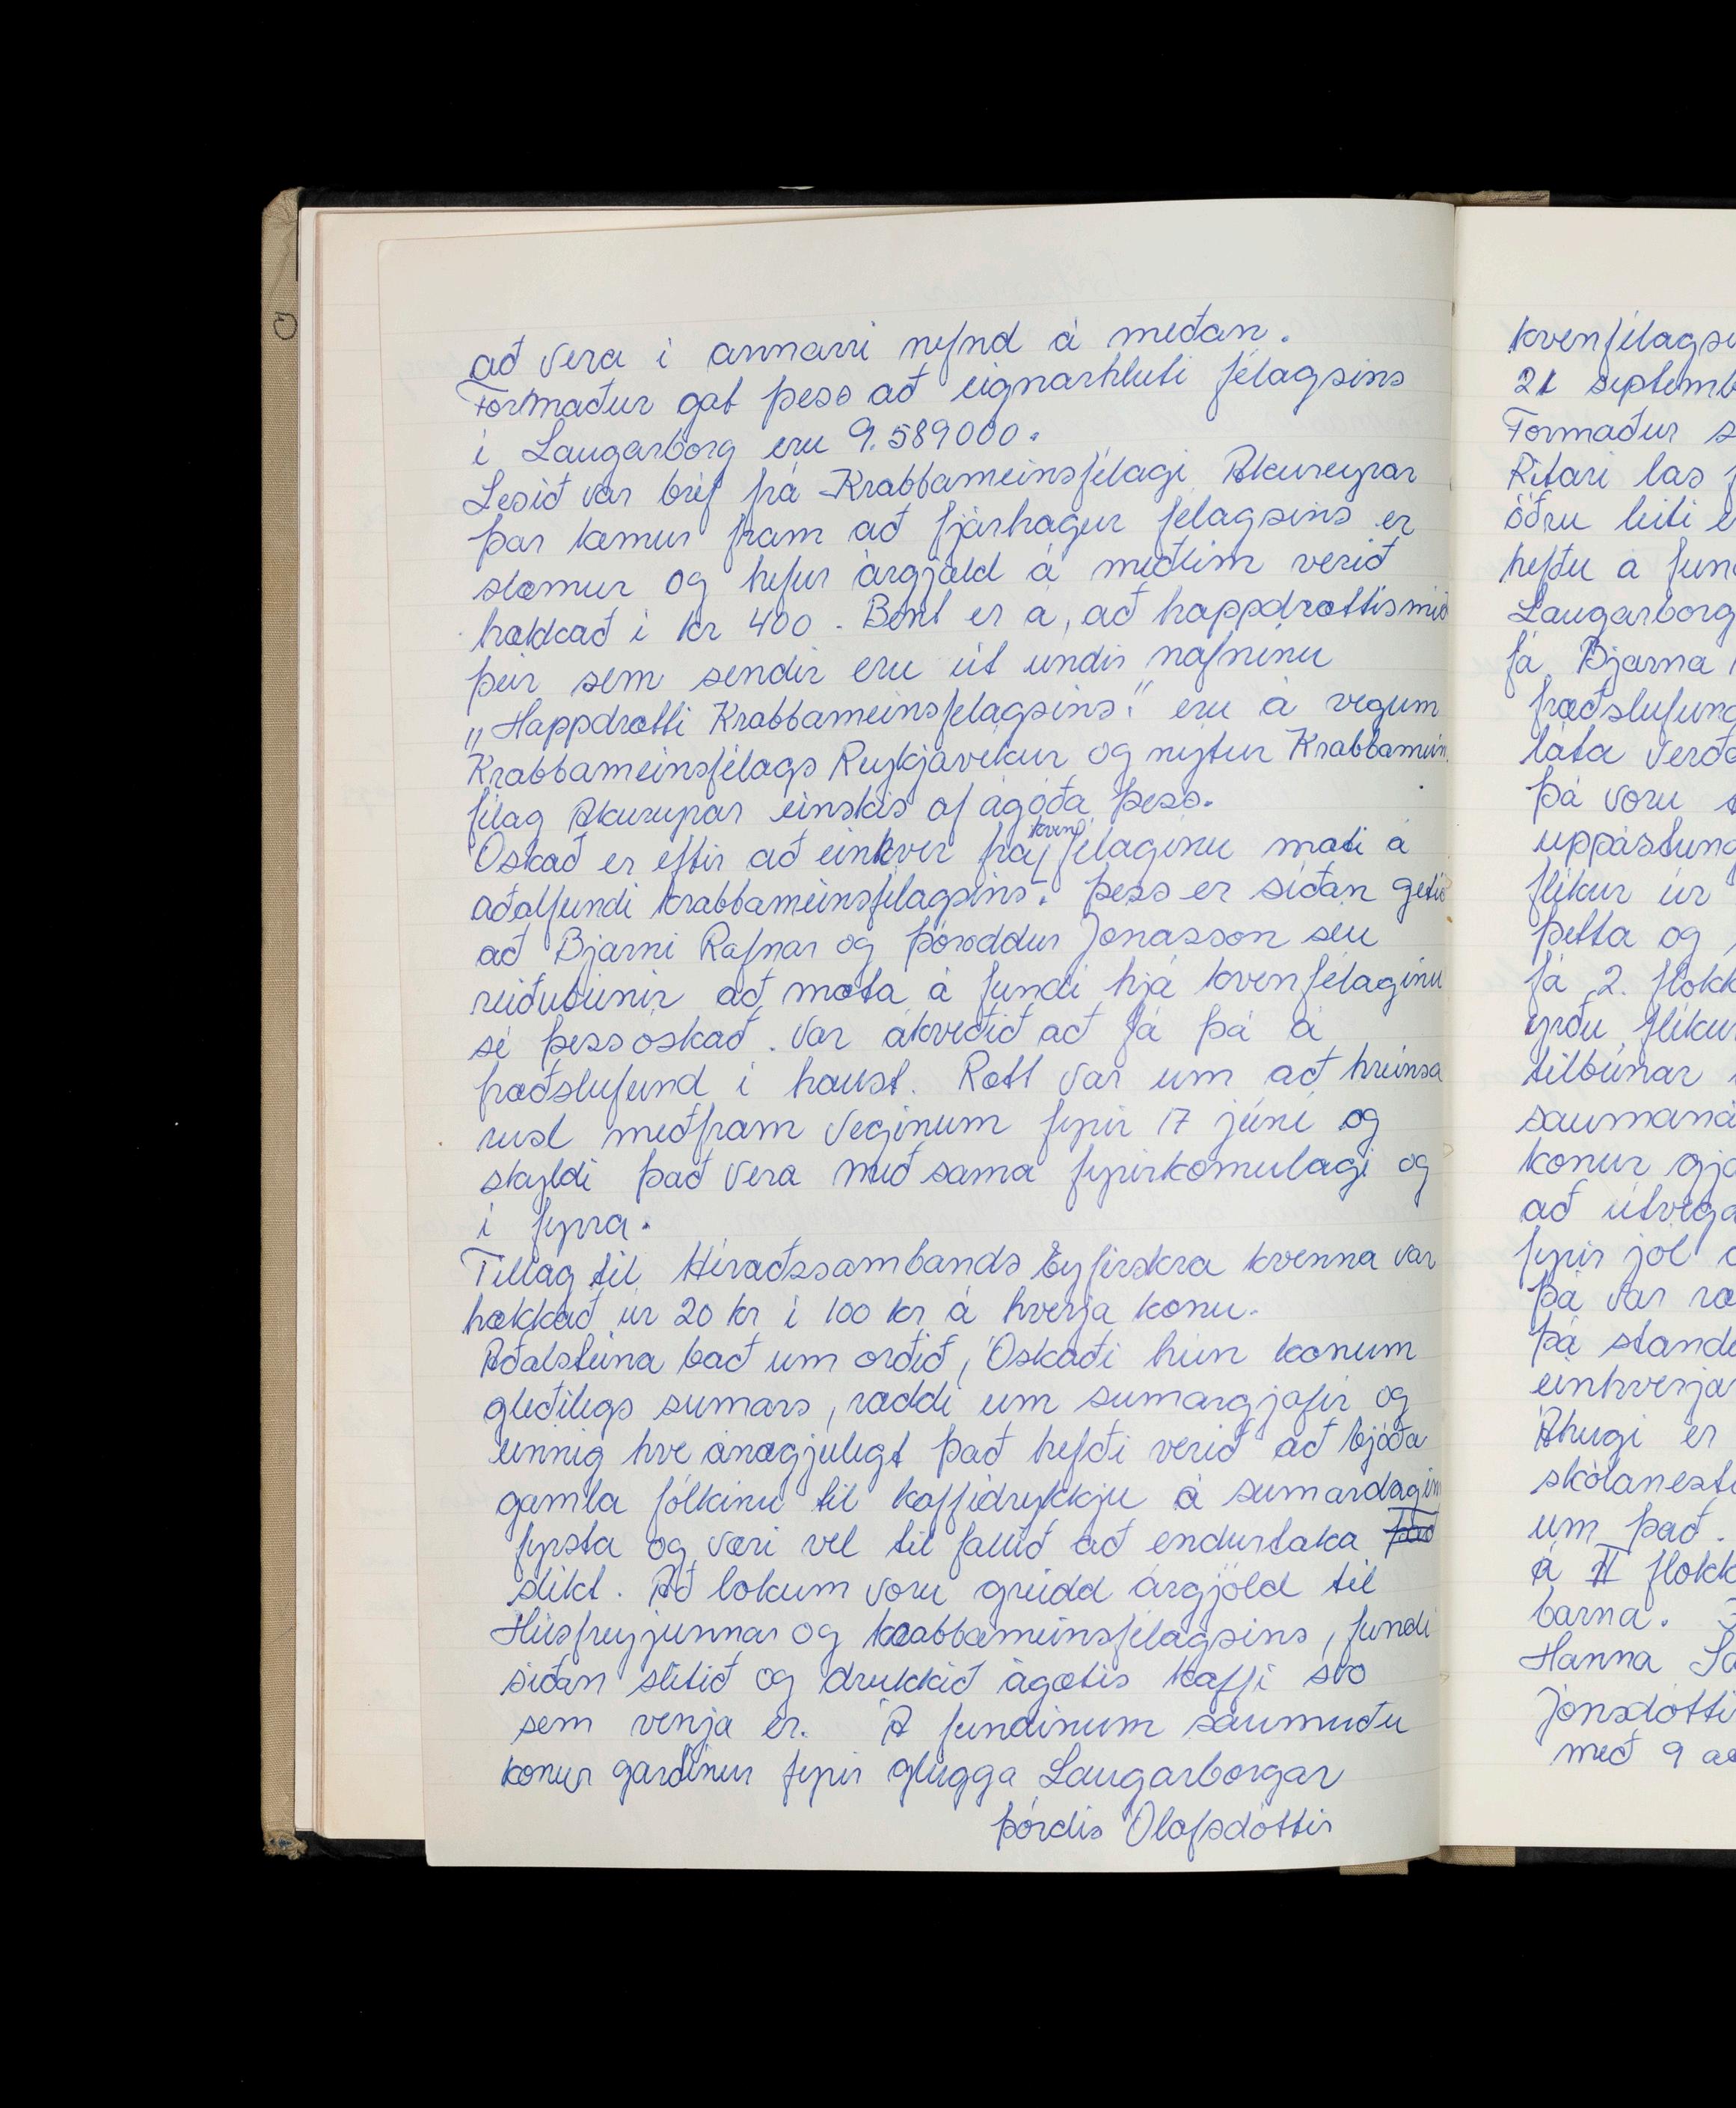 að vera í annarri nefnd á meðan.
Formaður gat þess að eignarhluti félagsins
í Laugarborg eru 9.589000.
Lesið var bréf frá Krabbameinsfélagi Akureyrar
þar kemur fram að fjárhagur félagsins er
slæmur og hefur árgjald á meðlim verið
hækkað í kr 400. Bent er á, að happdrættismið
þeir sem sendir eru út undir nafninu
„Happdrætti Krabbameinsfélagsins." eru á vegum
Krabbameinsfélags Reykjavíkur og nýtur Krabbamein
félag Akureyrar einskis af ágóða þess.
Óskað er eftir að einhver frá kvenfélaginu mæti á
aðalfundi krabbameinsfélagsins. Þess er síðan getið
að Bjarni Rafnar og Þóroddur Jónasson séu
reiðubúnir að mæta á fundi hjá kvenfélaginu
sé þess óskað. Var ákveðið að fá þá á
fræðslufund í haust. Rætt var um að hreinsa
rusl meðfram veginum fyrir 17 júní og
skyldi það vera með sama fyrirkomulagi og
í fyrra.
Tillag til Héraðssambands Eyfirskra kvenna var
hækkað úr 20 kr í 100 kr á hverja konu.
Aðalsteina bað um orðið, Óskaði hún konum
gleðilegs sumars, ræddi um sumargjafir og
einnig hve ánægjulegt það hefði verið að bjóða
gamla fólkinu til kaffidrykkju á sumardaginn
fyrsta og væri vel til fallið að endurtaka það
slíkt. Að lokum voru greidd árgjöld til
Húsfreyjunnar og krabbameinsfélagsins, fundi
síðan slitið og drukkið ágætis kaffi svo
sem venja er. Á fundinum saumuðu
konur gardínur fyrir glugga Laugarborgar
Þórdís Ólafsdóttir
kvenfélagsi
21 septemb
Formaður s
Ritari las f
öðru leiti e
hefðu á fun
Laugarborg
fá Bjarna
fræðslufund
láta verða
Þá voru
uppástung
flíkur úr
þetta og
fá 2. flokk
yrðu flíkur
tilbúnar
saumaná
konur gja
að útvega
fyrir jól
Þá var ræ
Þá stand
einhverja
Áhugi er
skólanest
um það.
á II flokk
barna.
Hanna
Jónsdótti
með 9